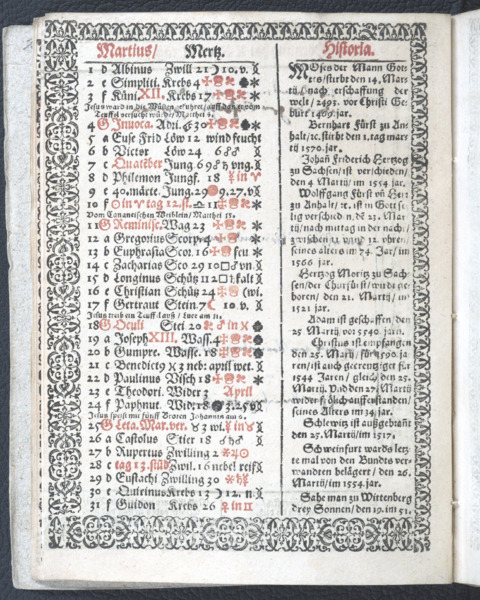 Martius/ Mertz.
1 d Albinus Zwill 21 ☽ 10. v.
2 e Simplici. Krebs 4
3 f Küni. XII. Krebs 17
Teuffel versucht Matthei 4.
4 G Invoca. Adri. 30
5 a Euse Frid Löw 12 wind feucht
6 b Victor Löw 24 6
7 c Quatēber Jung. 69 vng.
8 d Philemon Jungf. 18 ☿ in ♈
9 e 40. märte. Jung. 29 9. 27. v
10 f ☉ in ♈ tag 12. st. ♎ 11
Vom Cananeischen Weiblein/ Matthei 15.
11 G Reminisc. Wag 23
12 a Gregorius Scorp. 4
13 b Euphrasia Scor. 16 feu
14 c Zacharias Sco 29 10 □ ♂ vn.
15 d Longinus Schütz 11 2 kalt
16 e Christian Schütz 24 (wi.
17 f Gertraut Stein. 7 ☾ 10 v.
Jesus treib ein Teuffel auß/ Luce am 11.
18 G Oculi Stei 20 ♂ in ♓
19 a Joseph XIII. Wass. 4
20 b Gumpre. Wasse. 18
21 c Benedict 9 ♓ 3 neb: april wet.
22 d Paulinus Visch 18
23 e Theodori. Wider 3 April
24 f Paphnut. Wid. 18 3. 25. v
Jesus speist mit fünff Broten Johannis am 6.
25 G Leta. Mar. ver. ♉ 3 wi. ☿ in ♉
26 a Castolus Stier 18
27 b Rupertus Zwilling 2
28 c tag 13. stūd Zwil. 16 nebel reif
29 d Eustachi Zwilling 30
30 e Quirinus Krebs 13 ☽ 12. n.
31 f Guidon Krebs 26 ♀ in ♊
Historia.
MOses der Mann Gott
tes/ stirbt den 14. Mar
tij/ nach erschaffung der
welt/ 2493. vor Christi Ge
burt 1469. jar.
Bernhart Fürst zu An
halt/ rc. stirbt den 1. tag martij
1570. jar.
Johañ Friderich Hertzog
zu Sachsen/ ist verschieden/
den 4 Martij/ im 1554 jar.
Wolffgang Fürst vñ Herr
zu Anhalt/ rc. ist in Gott se
lig verschiedē n/ dē 23. Mar
tij/ nach mittag in der nacht/
zwischen 11. vnd 12. vhren/
seines alters im 74. Jar/ im
1566. jar.
Hertzog Moritz zu Sach
sen/ der Churfürst/ wird ge
boren/ den 21. Martij/ im
1521 jar.
Adam ist geschaffen/ den
25 Martij vor 5540. jarn.
Christus ist empfangen
den 25. Martij/ für 1590. ja
ren/ ist auch gecreutziget für
1544 Jaren/ gleich/ den 25.
Martij/ vnd den 27. Martij
wider frölich aufferstanden/
seines Alters im 34. jar.
Schlewitz ist außgebrañt
den 25. Martij/ im 1517.
Schweinfurt ward/ letz
te mal von den Bunds ver
wandten belägert/ den 26.
Martij/ im 1554. jar.
Sahe man zu Wittenberg
drey Sonnen/ den 19. im 51.